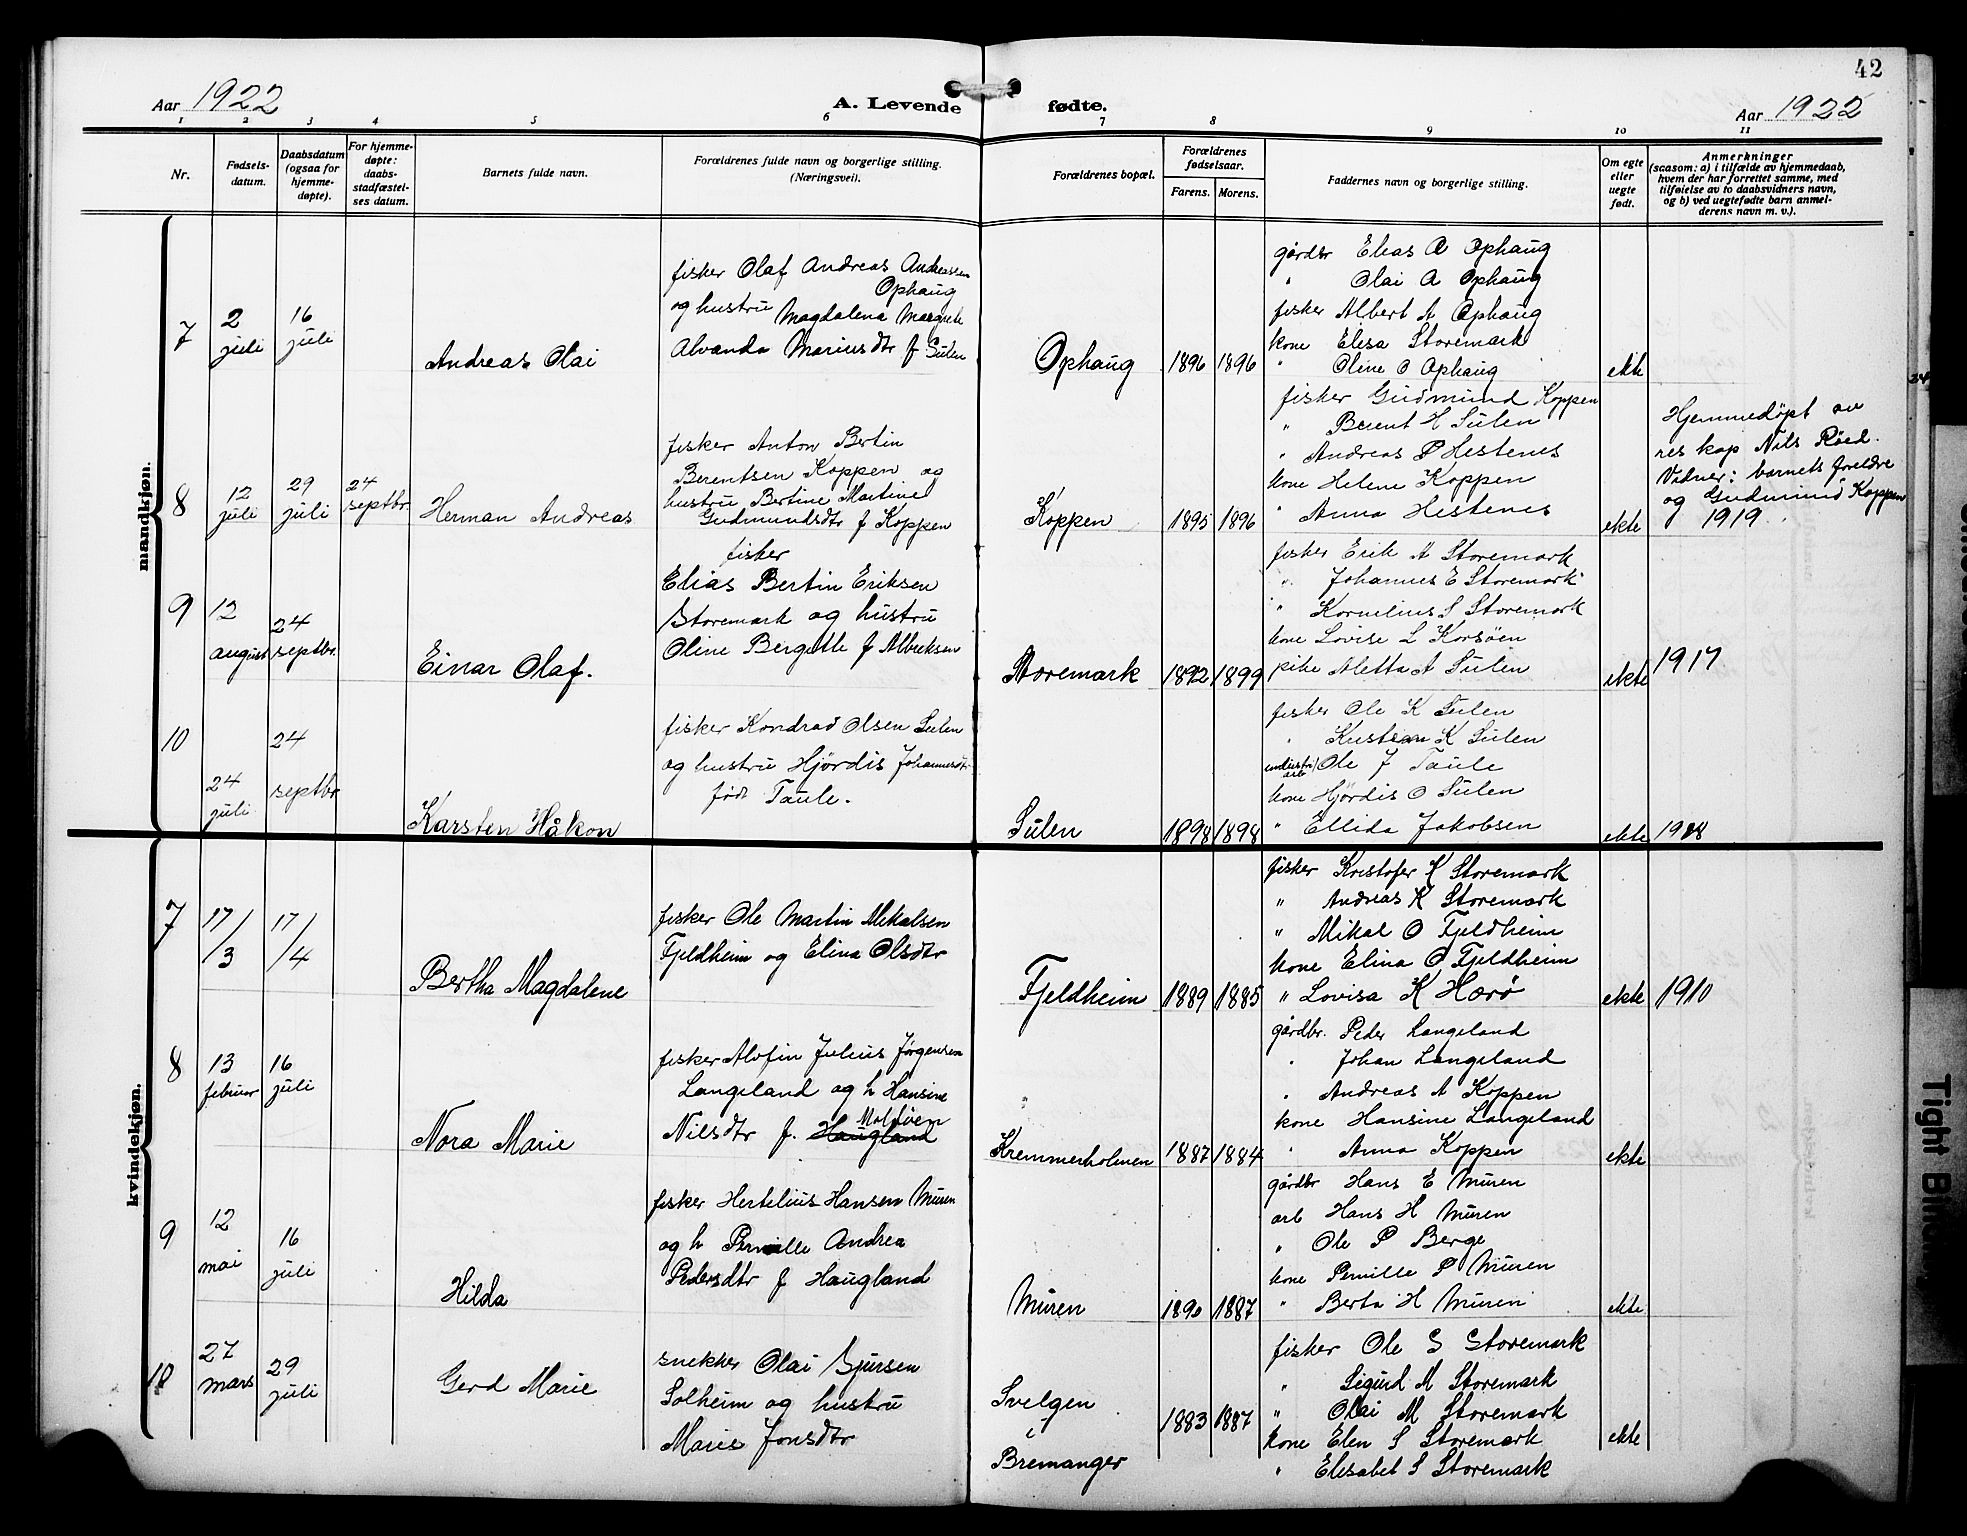 42
Aar 1922
A. Levende fødte.
Aar 1922
1 2 3 4 5 6 7 8 9 10 11
Nr.
Fødsels-
datum.
Daabsdatum
(ogsaa for
hjemme-
døpte).
For hjemme-
døpte:
daabs-
stadfæstel-
ses datum.
Barnets fulde navn.
Forældrenes fulde navn og borgerlige stilling.
(Næringsvei).
Forældrenes bopæl.
Forældrenes
fødselsaar.
Farens. Morens.
Faddernes navn og borgerlige stilling.
Om egte
eller
uegte
født.
Anmerkninger
(saasom: a) i tilfælde av hjemmedaab,
hvem der har forrettet samme, med
tilføielse av to daabsvidners navn,
og b) ved uegtefødte barn anmel-
derens navn m. v.).
mandkjøn.
7
2
juli
16
juli
Andreas Olai
fisker Olaf Andreas Andreassen
Ophaug
og hustru Magdalena Margrete
Alvanda Mariusdtr f Sulen
Ophaug
1896 1896
gårdbr Elias A Ophaug
" Olai A Ophaug
fisker Albert A Ophaug
kone Elisa Storemark
" Oline O Ophaug
ekte
8
12
juli
29
juli
24
septbr
Herman Andreas
fisker Anton Bertin
Berentsen Koppen og
hustru Bertine Martine
Gudmundsdtr f Koppen
Koppen
1895 1896
fisker Gudmund Koppen
" Berent H Sulen
" Andreas P Hestenes
kone Helene Koppen
" Anna Hestenes
ekte
Hjemmedøpt av
res kap Nils Røed.
Vidner: barnets foreldre
og Gudmund Koppen
1919.
9
12
august
24
septbr.
Einar Olaf.
fisker
Elias Bertin Eriksen
Storemark og hustru
Oline Bergitte f Albriksen
Storemark
1892 1899
fisker Erik A Storemark
" Johannes E Storemark
" Kornelius S Storemark
kone Lovise L Korsøen
pike Aletta A Sulen
ekte
1917
10
24
juli
24
septbr
Karsten Håkon
fisker Kondrad Olsen Sulen
og hustru Hjørdis Johannesdtr
født Taule.
Sulen
1898 1898
fisker Ole K Sulen
" Kristian K Sulen
industri
arb Ole J Taule
kone Hjørdis O Sulen
" Ellida Jakobsen
ekte
1918
kvindekjøn.
7
17/3
17/4
Bertha Magdalene
fisker Ole Martin Mikalsen
Fjeldheim og Elina Olsdtr
Fjeldheim
1889 1885
fisker Kristofer K Storemark
" Andreas K Storemark
" Mikal O Fjeldheim
kone Elina O Fjeldheim
" Lovisa K Hærø
ekte
1910
8
13
februar
16
juli
Nora Marie
fisker Alvfin Julius Jørgensen
Langeland og h Hansine
Moldøen
Nilsdtr f. Haugland
Kremmerholmen
1887 1884
gårdbr. Peder Langeland
" Johan Langeland
" Andreas A Koppen
kone Hansine Langeland
" Anna Koppen
ekte
9
12
mai
16
juli
Hilda
fisker Hertelius Hansen Muren
og h Pernille Andrea
Pedersdtr f Haugland
Muren
1890 1887
gårdbr Hans E Muren
arb Hans H Muren
" Ole P Berge
kone Pernille P Muren
" Berta H Muren
ekte
10
27
mars
29
juli
Gerd Marie
snekker Olai Sjursen
Solheim og hustru
Marie Jonsdtr
Svelgen
i
Bremanger
1883 1887
fisker Ole S Storemark
" Sigurd M Storemark
" Olai M Storemark
kone Elen S Storemark
" Elisabet S Storemark
ekte
Tight Bin